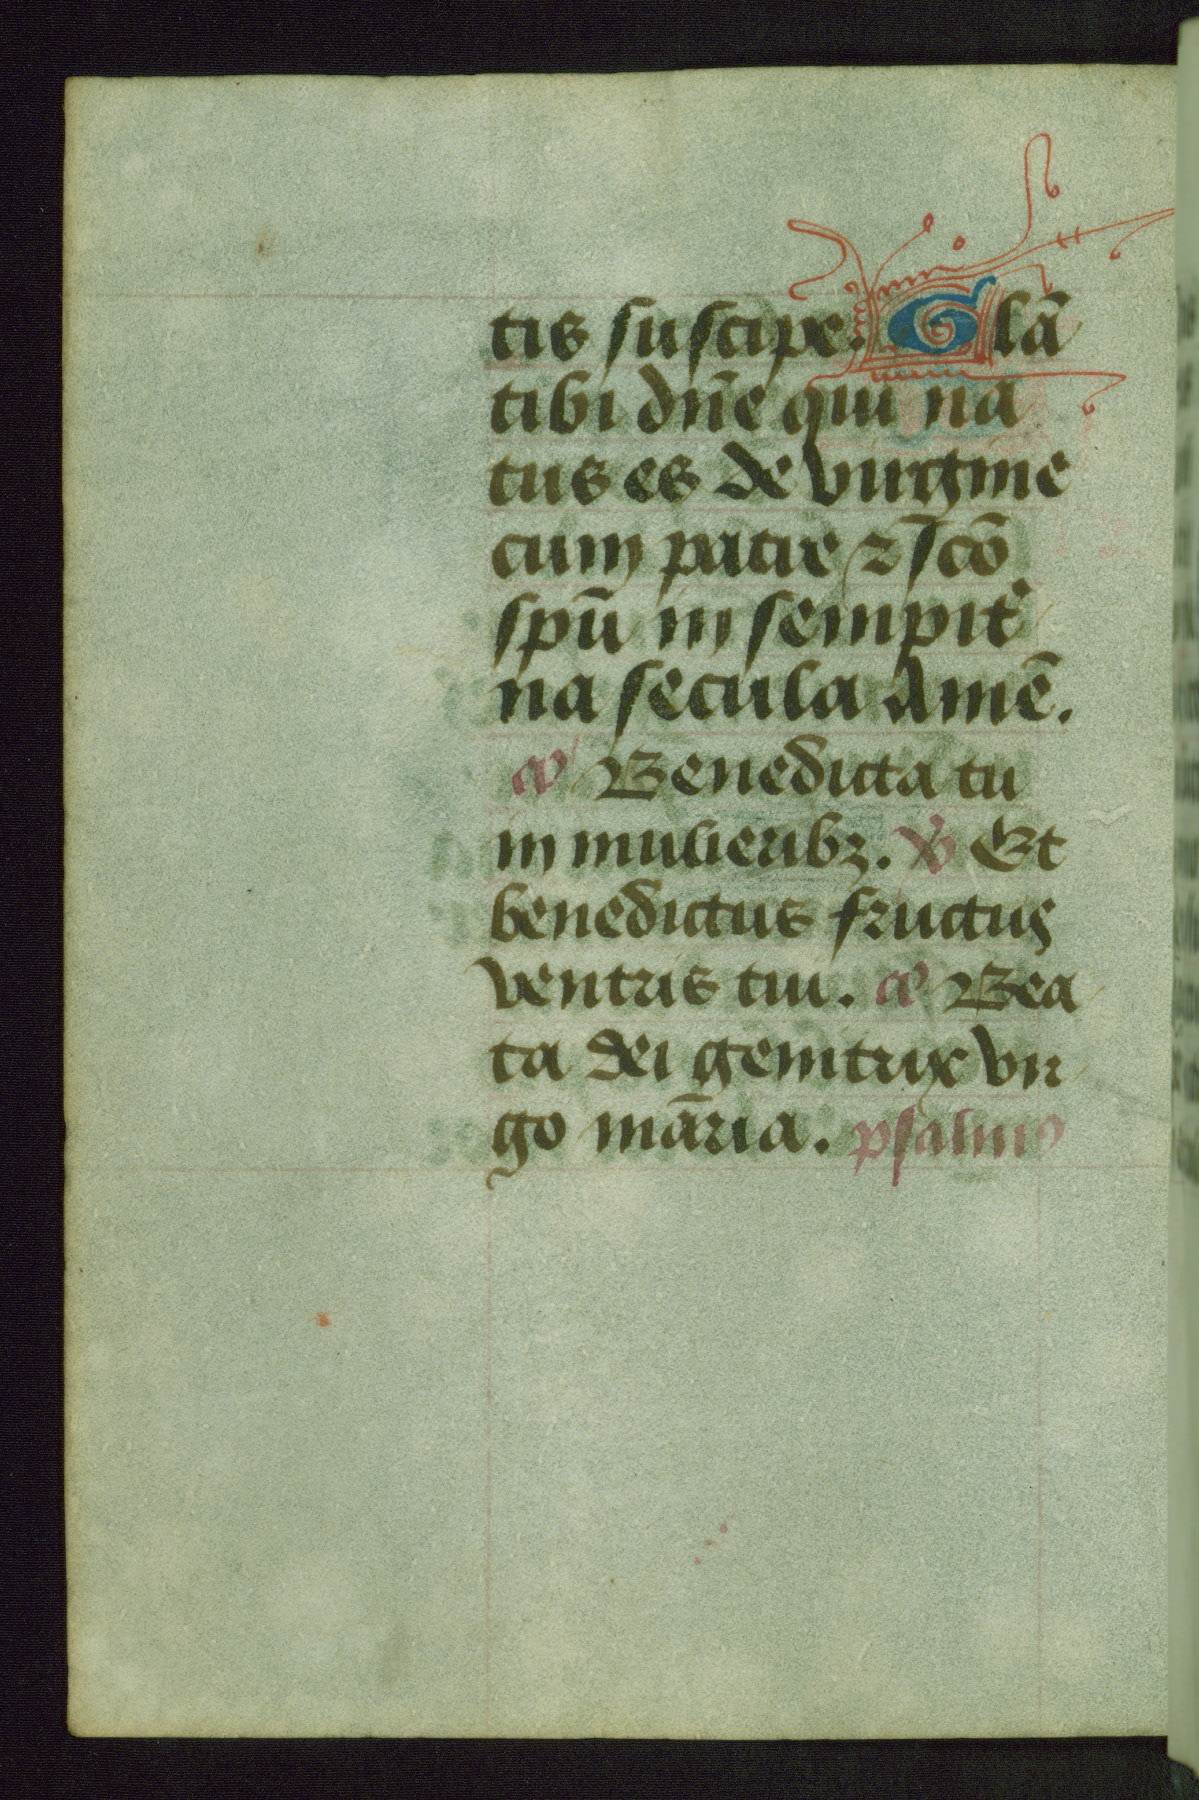 tis suscipe. Glā
tibi dn̄e qui na
tus es de virgine
cum patre ⁊ scō
spū in sempit̉
na secula Amē.
an̄ Benedicta tu
in mulieribꝫ. ℣ Et
benedictus fructus
ventris tui. an̄ Bea
ta dei genitrix vir
go māria. psalmꝰ